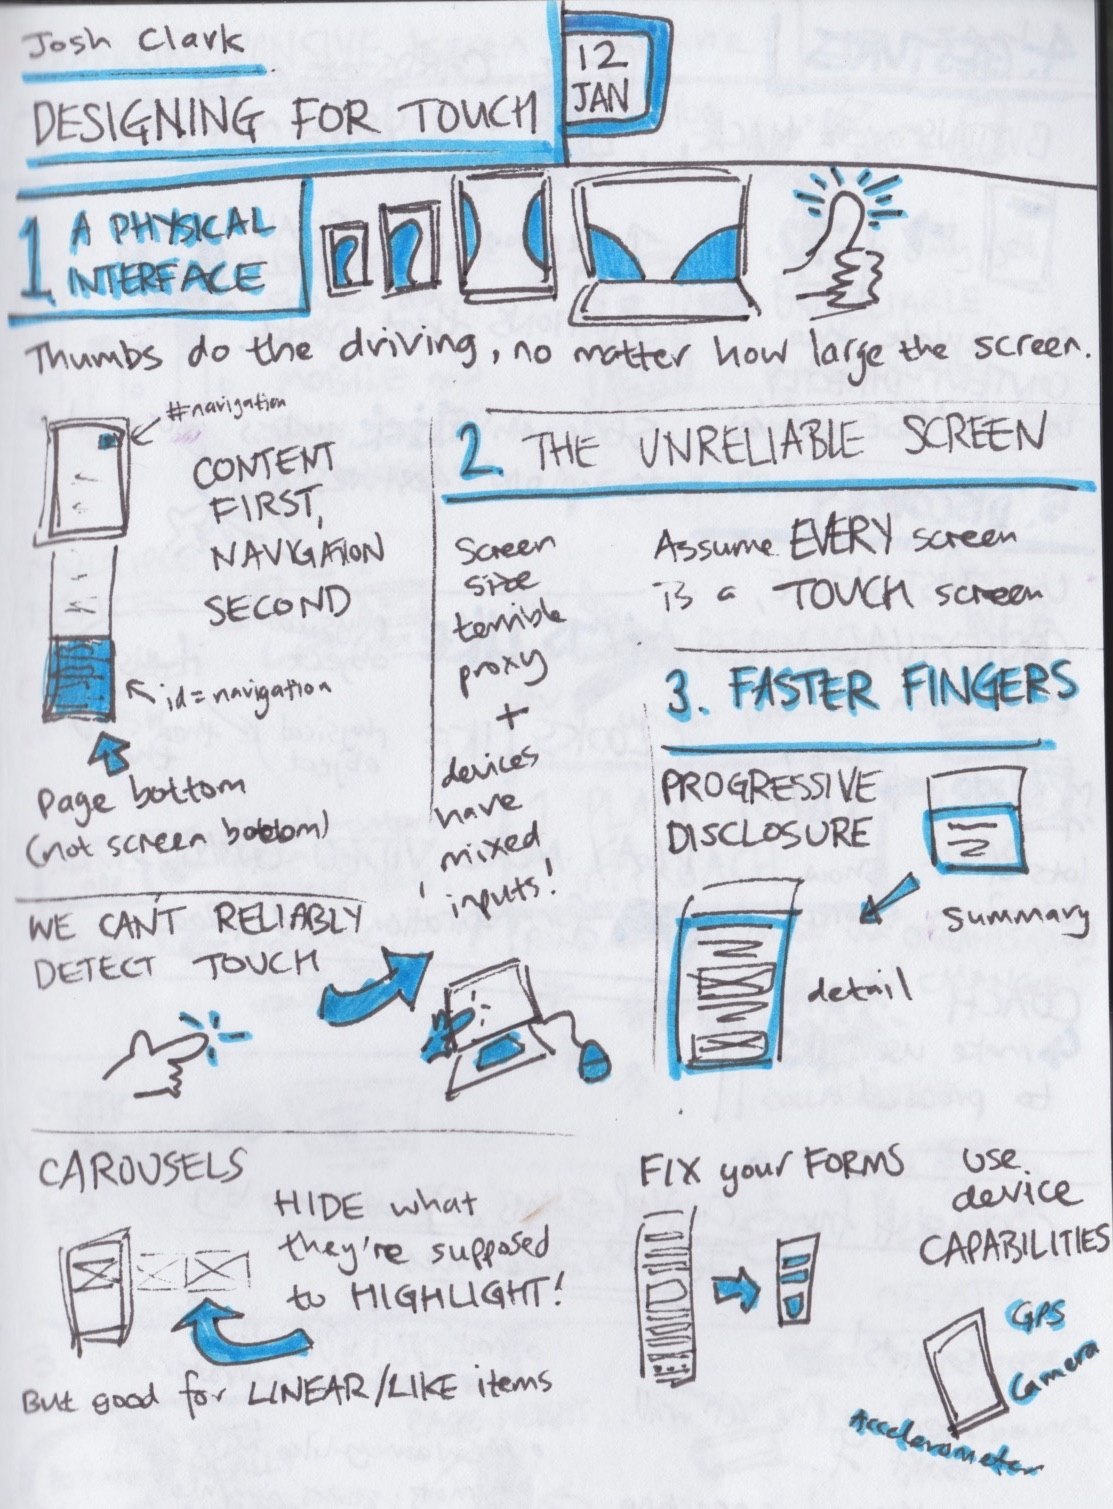 Josh Clark
DESIGNING FOR TOUCH
12
JAN
1 A PHYSICAL
INTERFACE
Thumbs do the driving, no matter how large the screen.
#navigation
CONTENT
FIRST,
NAVIGATION
SECOND
id=navigation
Page bottom
(not screen bottom)
2. THE UNRELIABLE SCREEN
Screen
size
terrible
proxy
+
devices
have
mixed
inputs!
Assume EVERY screen
is a TOUCH screen
WE CAN'T RELIABLY
DETECT TOUCH
3. FASTER FINGERS
PROGRESSIVE
DISCLOSURE
summary
detail
CAROUSELS
HIDE what
they're supposed
to HIGHLIGHT!
But good for LINEAR/LIKE items
FIX your FORMS
use
device
CAPABILITIES
GPS
Camera
Accelerometer